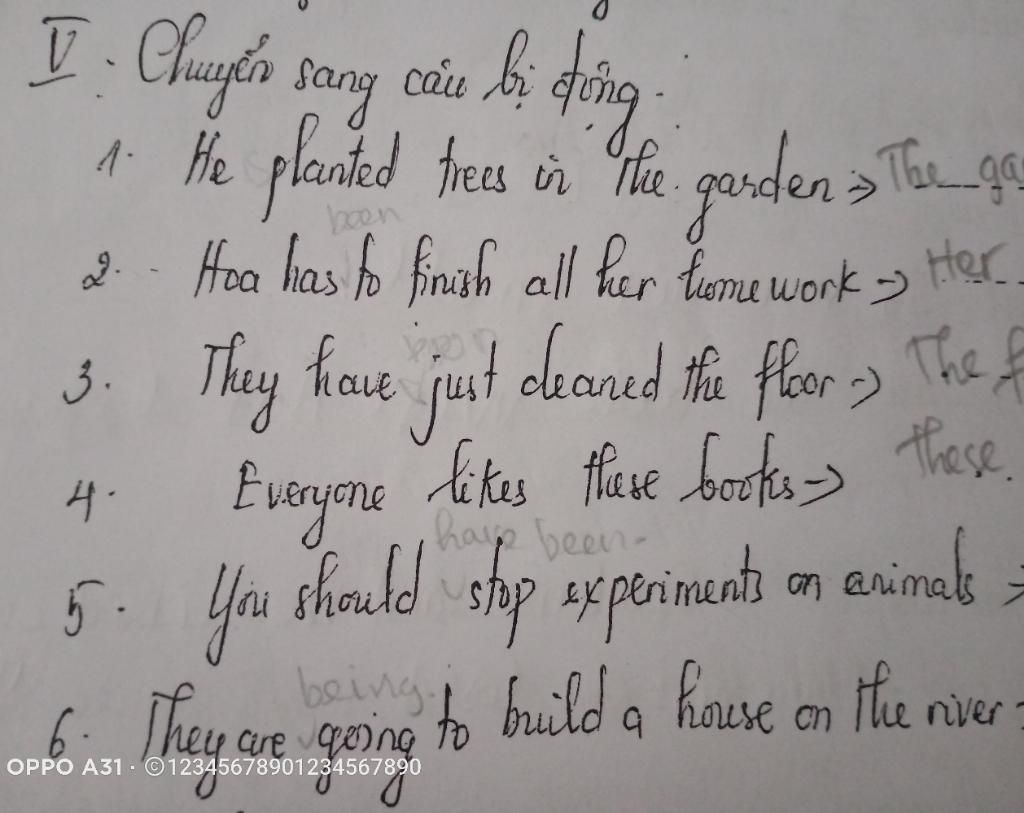 V. Chuyển sang câu bị động.
1. He planted trees in the garden => The
been
2. Hoa has to finish all her homework -> Her
been
3. They have just cleaned the floor -> The
4. Everyone likes these books -> these
have been
5. You should stop experiments on animals
being
6. They are going to build a house on the river
OPPO A31 · ©12345678901234567890